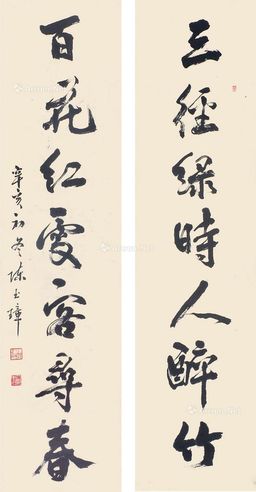 三徑綠時人醉竹
百花紅處客尋春
辛亥初冬陳玉璋